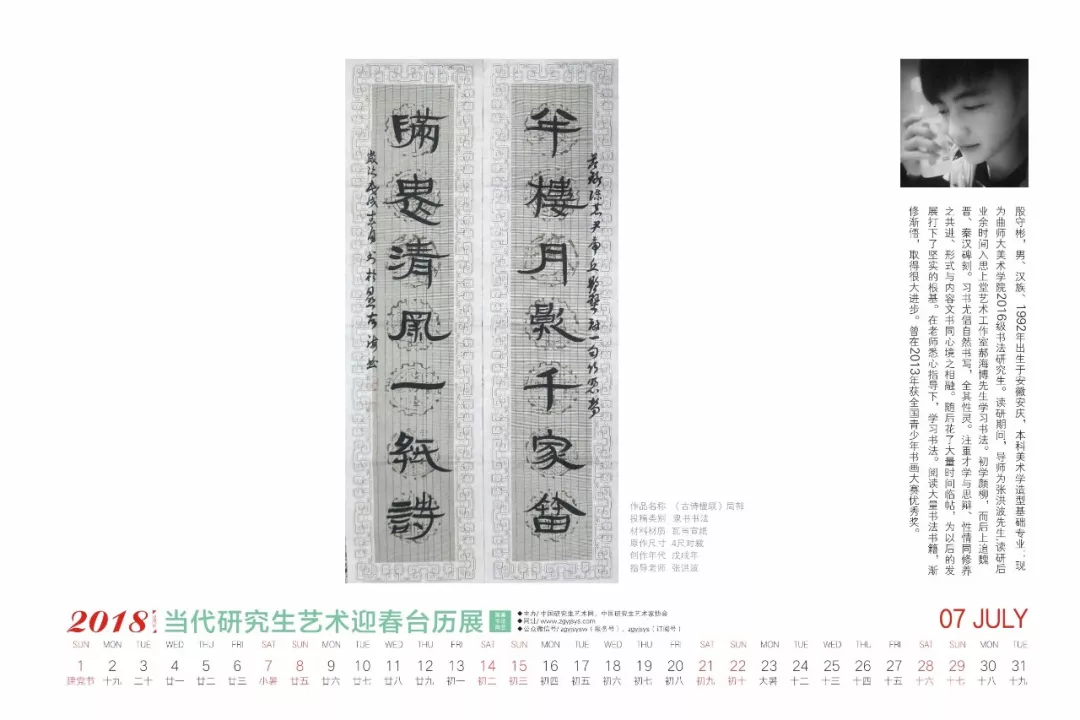 半樓月影千家笛
滿
清風一紙詩
殷守彬，男，汉族，1992年出生于安徽安庆，本科美术学造型基础专业，现
为曲师大美术学院2016级书法研究生。读研期间，导师为张洪波先生，读研后
业余时间入思上堂艺术工作室郝海博先生学习书法。初学颜柳，而后上追魏
晋、秦汉碑刻。习书尤倡自然书写，全其性灵。注重才学与思辩、性情同修养
之共进、形式与内容文书同心境之相融。随后花了大量时间临帖，为以后的发
展打下了坚实的根基。在老师悉心指导下，学习书法。阅读大量书法书籍，渐
修渐悟，取得很大进步。曾在2013年获全国青少年书画大赛优秀奖。
作品名称 《古诗楹联》局部
投稿类别 隶书书法
材料材质 瓦当宣纸
原作尺寸 4尺对裁
创作年代 戊戌年
指导老师 张洪波
2018 当代研究生艺术迎春台历展
◆主办/中国研究生艺术网、中国研究生艺术家协会
◆网址/www.zgyjsys.com
◆公众微信号/zgyjsysw（服务号）、zgyjsys（订阅号）
07 JULY
SUN MON TUE WED THU FRI SAT SUN MON TUE WED THU FRI SAT SUN MON TUE WED THU FRI SAT SUN MON TUE WED THU FRI SAT SUN MON TUE
1 2 3 4 5 6 7 8 9 10 11 12 13 14 15 16 17 18 19 20 21 22 23 24 25 26 27 28 29 30 31
建党节 十九 二十 廿一 廿二 廿三 小暑 廿五 廿六 廿七 廿八 廿九 初一 初二 初三 初四 初五 初六 初七 初八 初九 初十 大暑 十二 十三 十四 十五 十六 十七 十八 十九